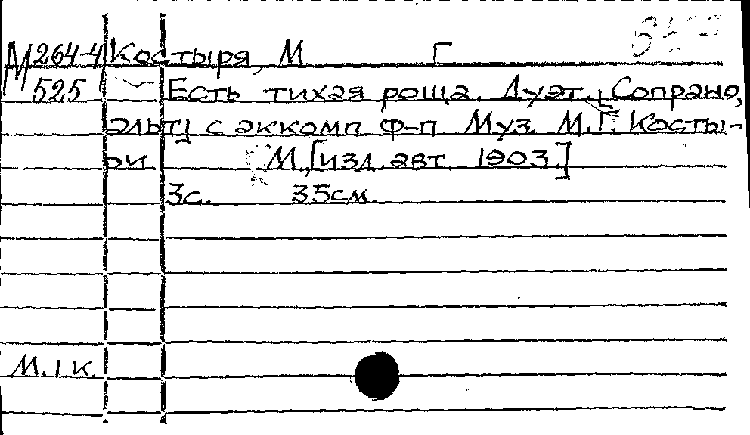 М 264-4 Костыря, М Г
525 Есть тихая роща. Дуэт. [Сопрано,
альт] с аккомп ф-п Муз. М.Г. Косты-
ри М., [изд. авт. 1903.]
3с. 35см.
М. 1 к.